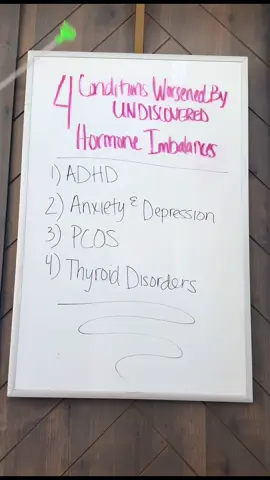 4 Conditions Worsened By
UNDISCOVERED
Hormone Imbalances
1) ADHD
2) Anxiety & Depression
3) PCOS
4) Thyroid Disorders